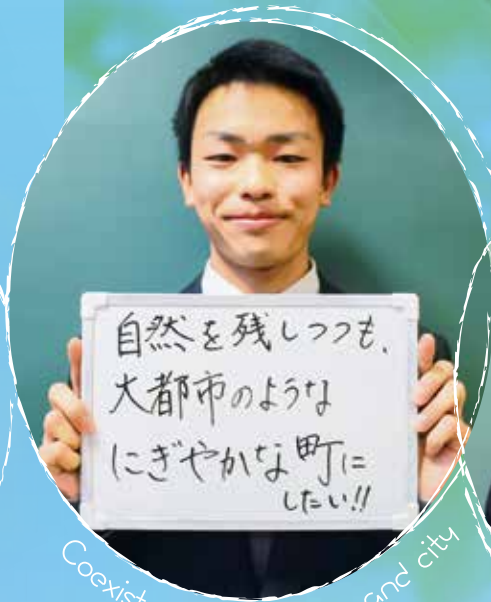 自然を残しつつも、
大都市のような
にぎやかな町に
したい!!
and city